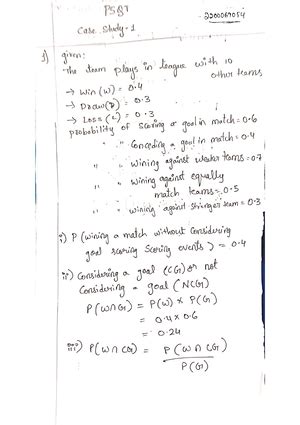 PSQT
2200069054
Case Study-1
1) given:
The team plays in league with 10
other teams
→ Win (W) = 0.4
→ Draw(D) = 0.3
→ Loss (L) = 0.3
probobility of scoring a goal in match = 0.6
" " Conceding a goal in match = 0.4
" " wining against weaker teams = 0.7
" " wining against equally
match teams = 0.5
" " wining against stronger team = 0.3
i) P (wining a match without Considering
goal scoring Scering events) = 0.4
ii) Considering a goal (CG) or not
Considering a goal (NCG)
P(W∩G) = P(W) × P(G)
= 0.4 × 0.6
= 0.24
iii) P(W∩CG) = P(W∩CG)
P(G)